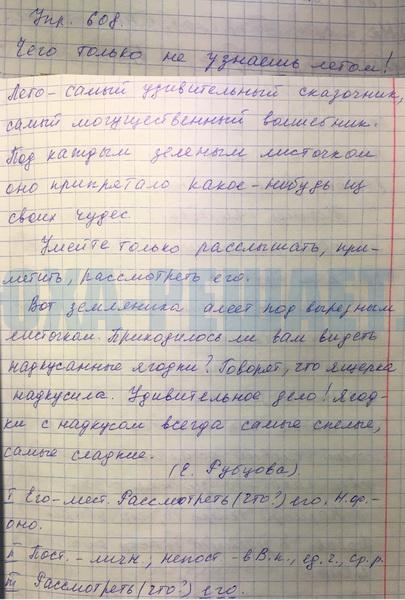 Упр. 608.
Чего только не узнаешь летом!
Лето - самый удивительный сказочник,
самый могущественный волшебник.
Под каждым зеленым листочком
оно припрятало какое-нибудь из
своих чудес.
Умейте только расслышать, при-
метить, рассмотреть его.
Вот земляника алеет под вырезным
листочком. Приходилось ли вам видеть
надкусанные ягодки? Говорят, что ящерка
надкусила. Удивительное дело! Ягод-
ки с надкусом всегда самые спелые,
самые сладкие.
(Е. Рубцова)
I Его - мест. Рассмотреть (что?) его, Н.ф. -
оно.
II Пост. - личн; непост - в В.п., ед.ч., ср.р.
III Рассмотреть (что?) его.